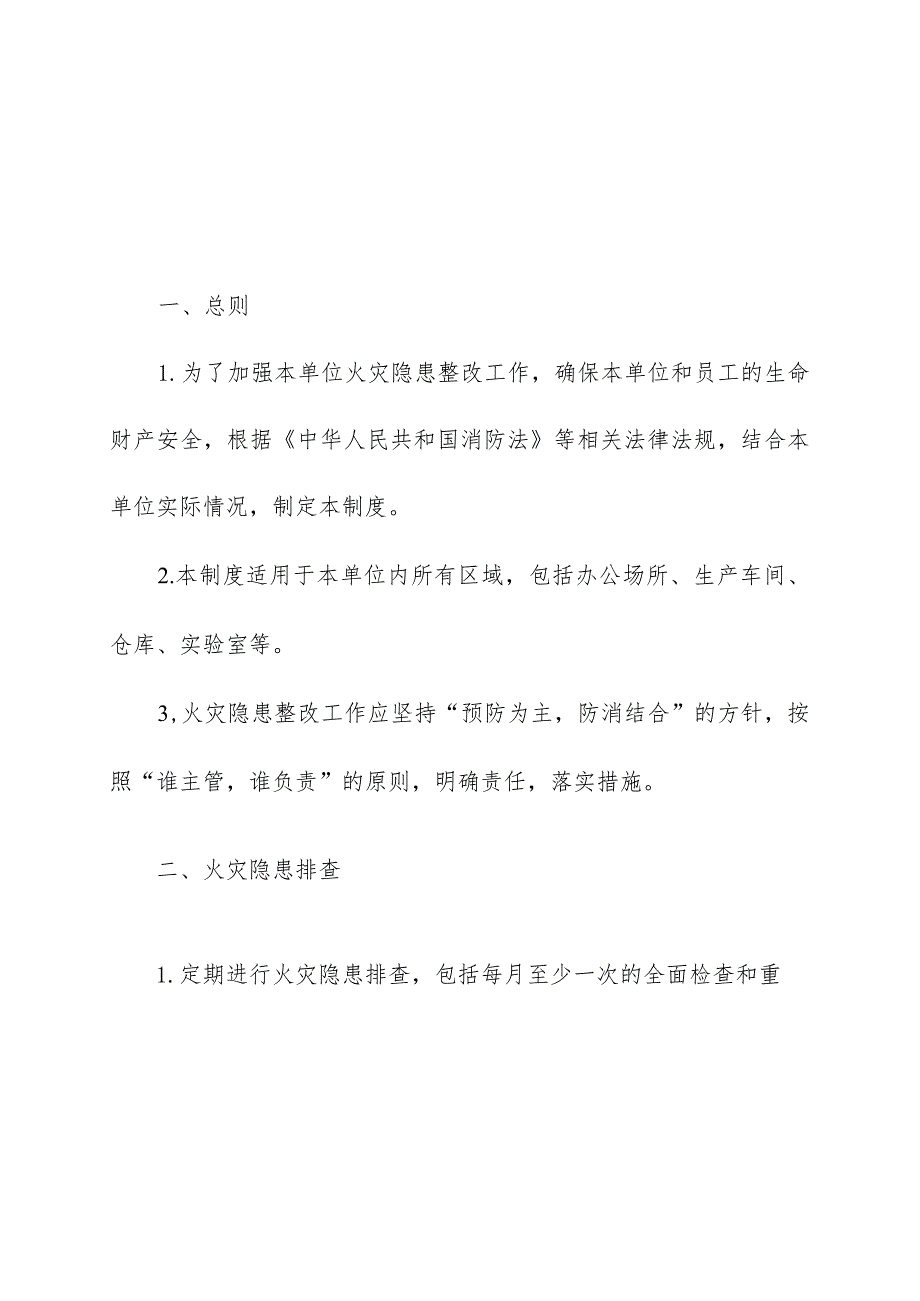 一、总则
1. 为了加强本单位火灾隐患整改工作，确保本单位和员工的生命
财产安全，根据《中华人民共和国消防法》等相关法律法规，结合本
单位实际情况，制定本制度。
2.本制度适用于本单位内所有区域，包括办公场所、生产车间、
仓库、实验室等。
3,火灾隐患整改工作应坚持“预防为主，防消结合”的方针，按
照“谁主管，谁负责”的原则，明确责任，落实措施。
二、火灾隐患排查
1. 定期进行火灾隐患排查，包括每月至少一次的全面检查和重